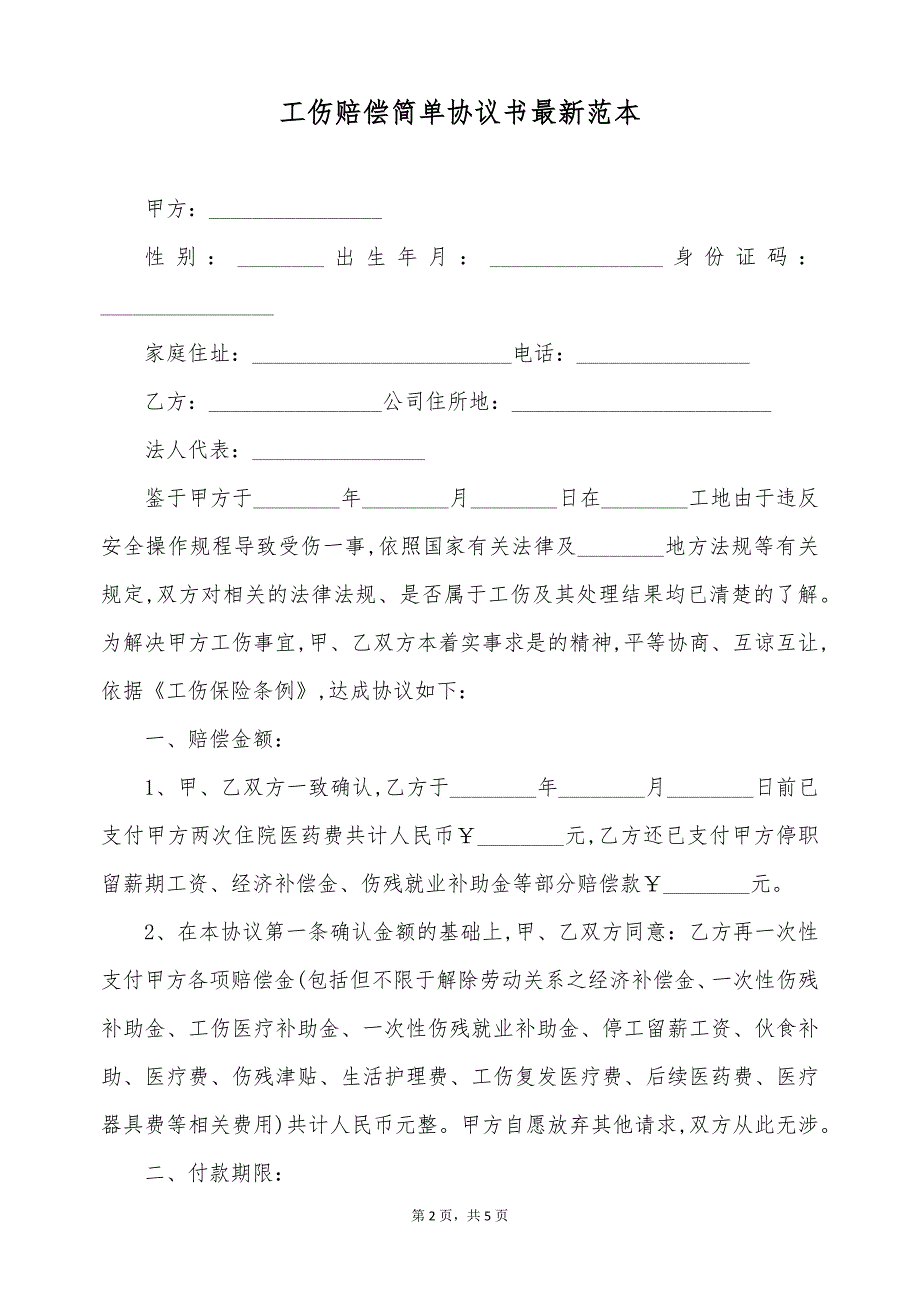 工伤赔偿简单协议书最新范本
甲方：________________
性别：________出生年月：________________身份证码：
________________
家庭住址：________________________电话：________________
乙方：________________公司住所地：________________________
法人代表：________________
鉴于甲方于________年________月________日在________工地由于违反
安全操作规程导致受伤一事,依照国家有关法律及________地方法规等有关
规定,双方对相关的法律法规、是否属于工伤及其处理结果均已清楚的了解。
为解决甲方工伤事宜,甲、乙双方本着实事求是的精神,平等协商、互谅互让,
依据《工伤保险条例》,达成协议如下：
一、赔偿金额：
1、甲、乙双方一致确认,乙方于________年________月________日前已
支付甲方两次住院医药费共计人民币￥________元,乙方还已支付甲方停职
留薪期工资、经济补偿金、伤残就业补助金等部分赔偿款￥________元。
2、在本协议第一条确认金额的基础上,甲、乙双方同意：乙方再一次性
支付甲方各项赔偿金(包括但不限于解除劳动关系之经济补偿金、一次性伤残
补助金、工伤医疗补助金、一次性伤残就业补助金、停工留薪工资、伙食补
助、医疗费、伤残津贴、生活护理费、工伤复发医疗费、后续医药费、医疗
器具费等相关费用)共计人民币元整。甲方自愿放弃其他请求,双方从此无涉。
二、付款期限：
第 2 页，共 5 页